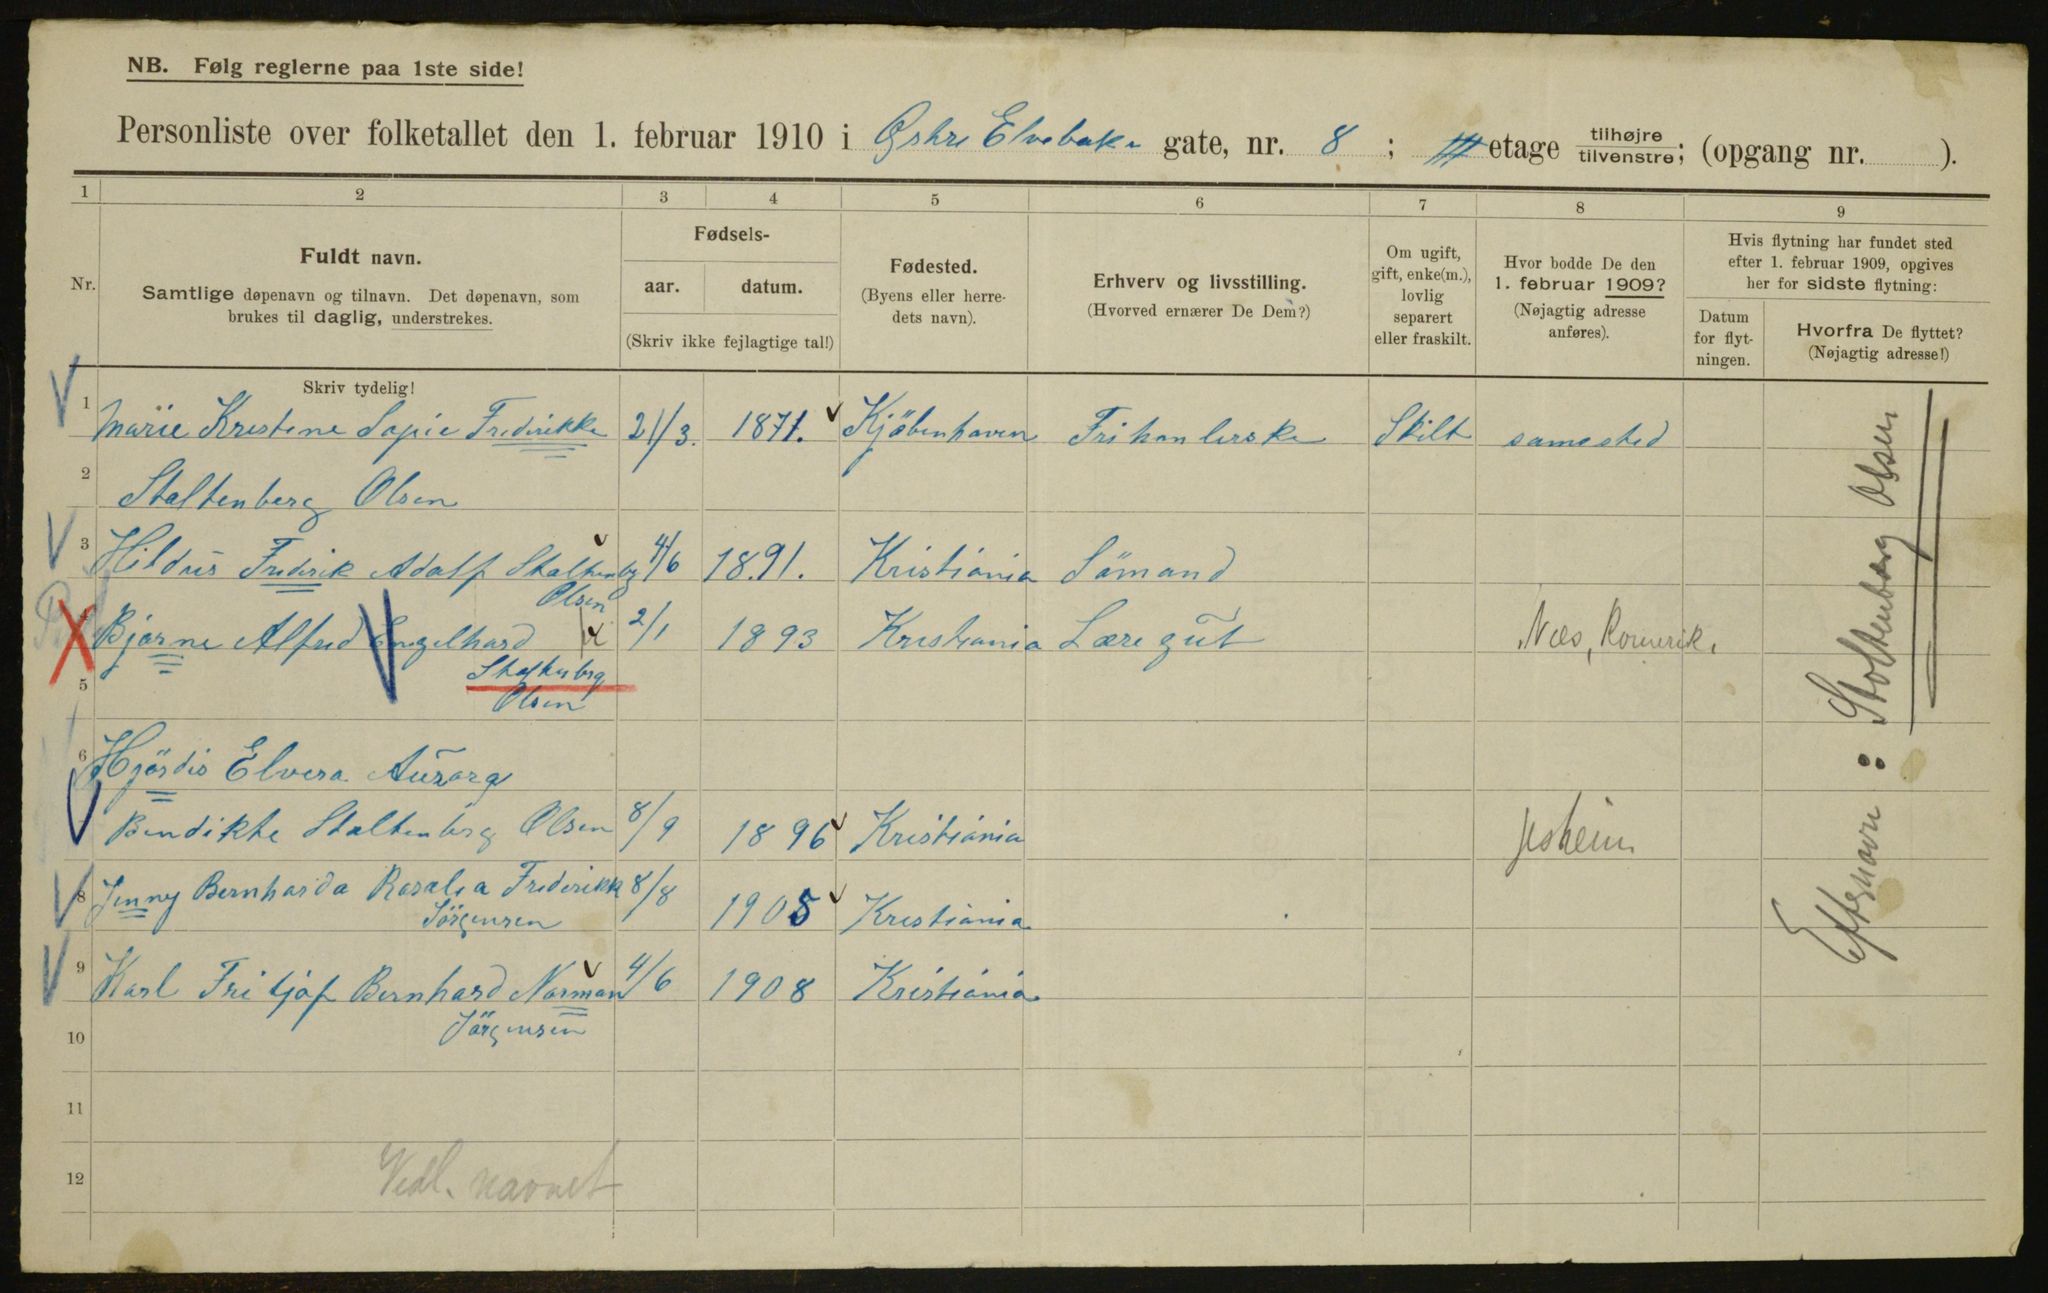 NB. Følg reglerne paa 1ste side!
Personliste over folketallet den 1. februar 1910 i Østre Elvebake gate, nr. 8 ; III etage tilhøjre tilvenstre; (opgang nr. ).
1 2 3 4 5 6 7 8 9
Nr.
Fuldt navn.
Samtlige døpenavn og tilnavn. Det døpenavn, som
brukes til daglig, understrekes.
Skriv tydelig!
Fødsels-
aar. datum.
(Skriv ikke fejlagtige tal!)
Fødested.
(Byens eller herre-
dets navn).
Erhverv og livsstilling.
(Hvorved ernærer De Dem?)
Om ugift,
gift, enke(m.),
lovlig
separert
eller fraskilt.
Hvor bodde De den
1. februar 1909?
(Nøjagtig adresse
anføres).
Hvis flytning har fundet sted
efter 1. februar 1909, opgives
her for sidste flytning:
Datum
for flyt-
ningen.
Hvorfra De flyttet?
(Nøjagtig adresse!)
1 Marie Kristine Sopie Frederikke 21/3. 1871. Kjöbenhaven Frihanlerske Skilt samested
2 Staltenberg Olsen
3 Hildus Frederik Adolf Staltenbg 4/6 1891. Kristiania Sömand
Olsen
4 Bjarne Alfred Engelhard 2/1 1893 Kristiania Læregut Nes, Romerik.
5 Staltenberg
Olsen
6 Hjördis Elvera Aurora
Bendikte Staltenberg Olsen 8/9 1896 Kristiania Jesheim
8 Jenny Bernharda Rosalia Frederikk 8/8 1905 Kristiania
Jörgensen
9 Karl Fritjof Bernhard Norman 4/6 1908 Kristiania
Jörgensen
10
11
12
Vedl. navnet
Efternavn: Stoltenberg Olsen